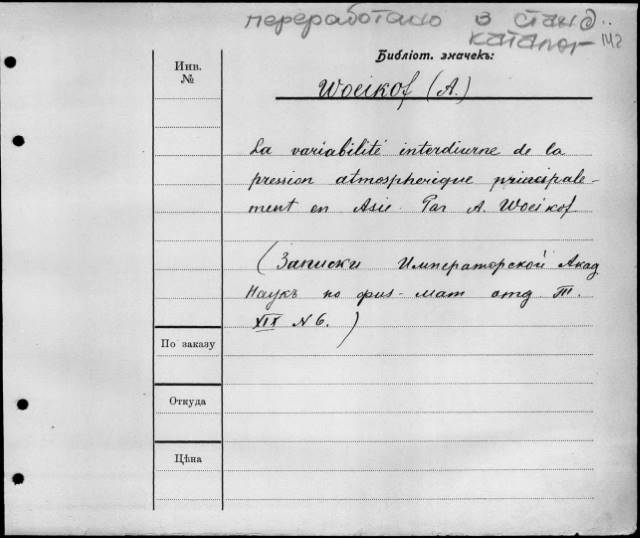 переработано в станд.
каталог 1М2
Инв.
№
Библіот. значекъ:
Woeikof (A.)
La variabilité interdiurne de la
pression atmosphérique principale-
ment en Asie Par A. Woeikof.
(Записки Императорской Акад
Наукъ по физ-мат отд Т.
XIX N 6.)
По заказу
Откуда
Цѣна